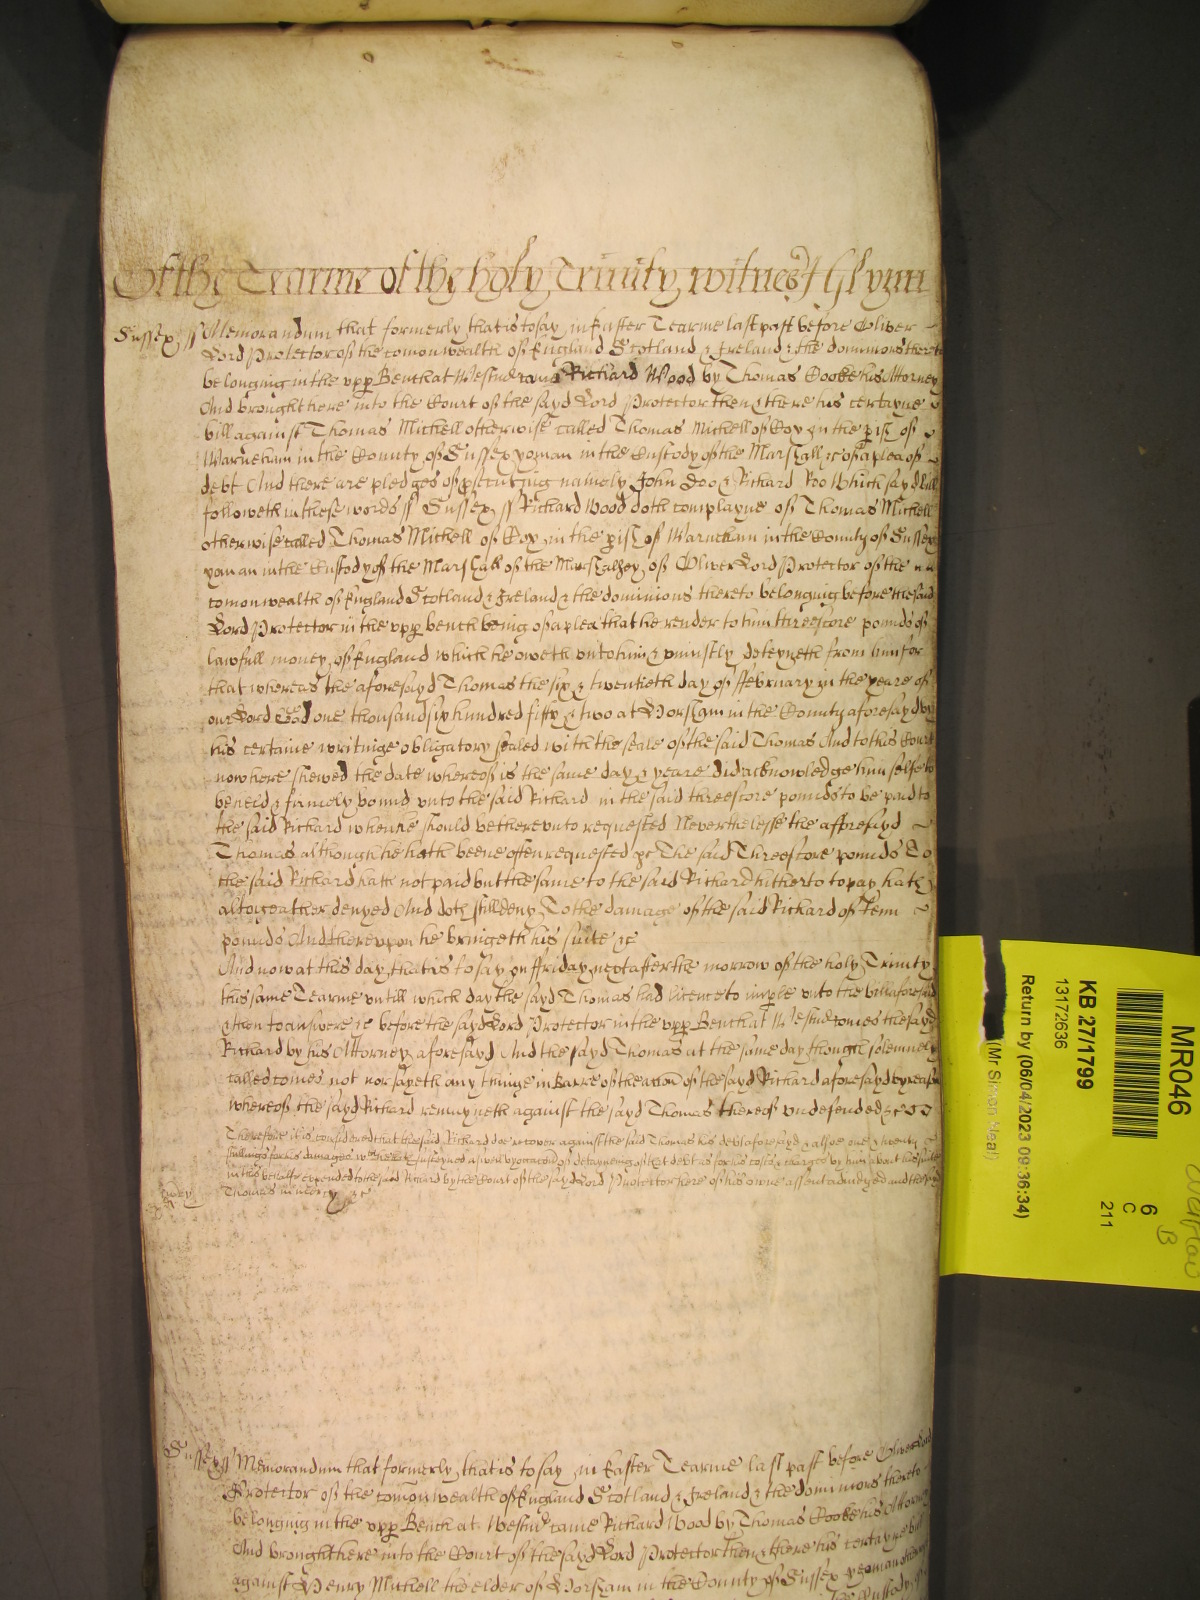 Of the Tearme of the holy Trinity witnes J Glynn
Sussex ss Memorandum that formerly that is to say in Easter Tearme last past before Oliver
Lord Protector of the comonwealth of England Scotland & Ireland & the dominions thereto
belonging in the upp Bench at Westm came Richard Wood by Thomas Cooke his Attorney
And brought here into the Court of the sayd Lord Protector then & there his certayne
bill against Thomas Michell otherwise called Thomas Michell of in the pish of
Warneham in the County of Sussex yoman in the Custody of the Marshall &c of a plea of
debt And there are pledges of psecuting namely John Doo & Richard Roo Which sayd bill
followeth in these words ss Sussex ss Richard Wood doth complayne of Thomas Michell
otherwise called Thomas Michell of in the pish of Warneham in the County of Sussex
yoman in the Custody of the Marshall of the Marshalsey of Oliver Lord Protector of the
comonwealth of England Scotland & Ireland & the dominions thereto belonging before the said
Lord Protector in the upp bench being of a plea that he render to him threescore pounds of
lawfull money of England which he oweth unto him & uniustly deteyneth from him for
that whereas the aforesayd Thomas the six & twentieth day of ffebruary in the yeare of
our Lord God one thousand six hundred fifty & two at Horsham in the County aforesayd by
his certaine writinge obligatory sealed with the seale of the said Thomas And to this Court
now here shewed the date whereof is the same day & yeare did acknowledge him selfe to
be held & firmely bound unto the said Richard in the said threescore pounds to be paid to
the said Richard when he should be thereunto requested Neverthelesse the afforesayd
Thomas although he hath beene often requested &c The said Threescore pounds To
the said Richard hath not paid but the same to the said Richard hitherto to pay hath
altogeather denyed And doth still deny To the damage of the said Richard of Tenn
pounds And thereupon he bringeth his suite &c
And now at this day that is to say on ffriday next after the morrow of the holy Trinity
this same Tearme untill which day the sayd Thomas had licence to imple unto the bill aforesaid
& then to answere &c before the sayd Lord Protector in the upp Bench at Westm comes the sayd
Richard by his Attorney aforesayd And the sayd Thomas at the same day though solemnely
called comes not nor sayeth any thinge in Barre of the accon of the sayd Richard aforesayd by reason
whereof the sayd Richard remayneth against the sayd Thomas thereof undefended &c
Therefore it is considered that the said Richard doe recover against the said Thomas his debt aforesayd & alsoe one & twenty
shillings for his damages wch he hath susteyned as well by occacon of deteyneing of that debt as for his costs & charges by him about his suite
in this behalfe expended to the said Richard by the Court of the sayd Lord Protector here of his owne assent adiudged and the sayd
Thomas in mercy &c
Sussex ss Memorandum that formerly that is to say in Easter Tearme last past before Oliver Lord
Protector of the comonwealth of England Scotland & Ireland & the dominions thereto
belonging in the upp Bench at Westm came Richard Wood by Thomas Cooke his Attorney
And brought here into the Court of the sayd Lord Protector then & there his certayne bill
against Henry Michell the elder of Horsham in the County of Sussex yeoman
the Custody of
MR046
6
C
211
B
KB 27/1799
13172636
Return by (06/04/2023 09:36:34)
(Mr Simon Neal)